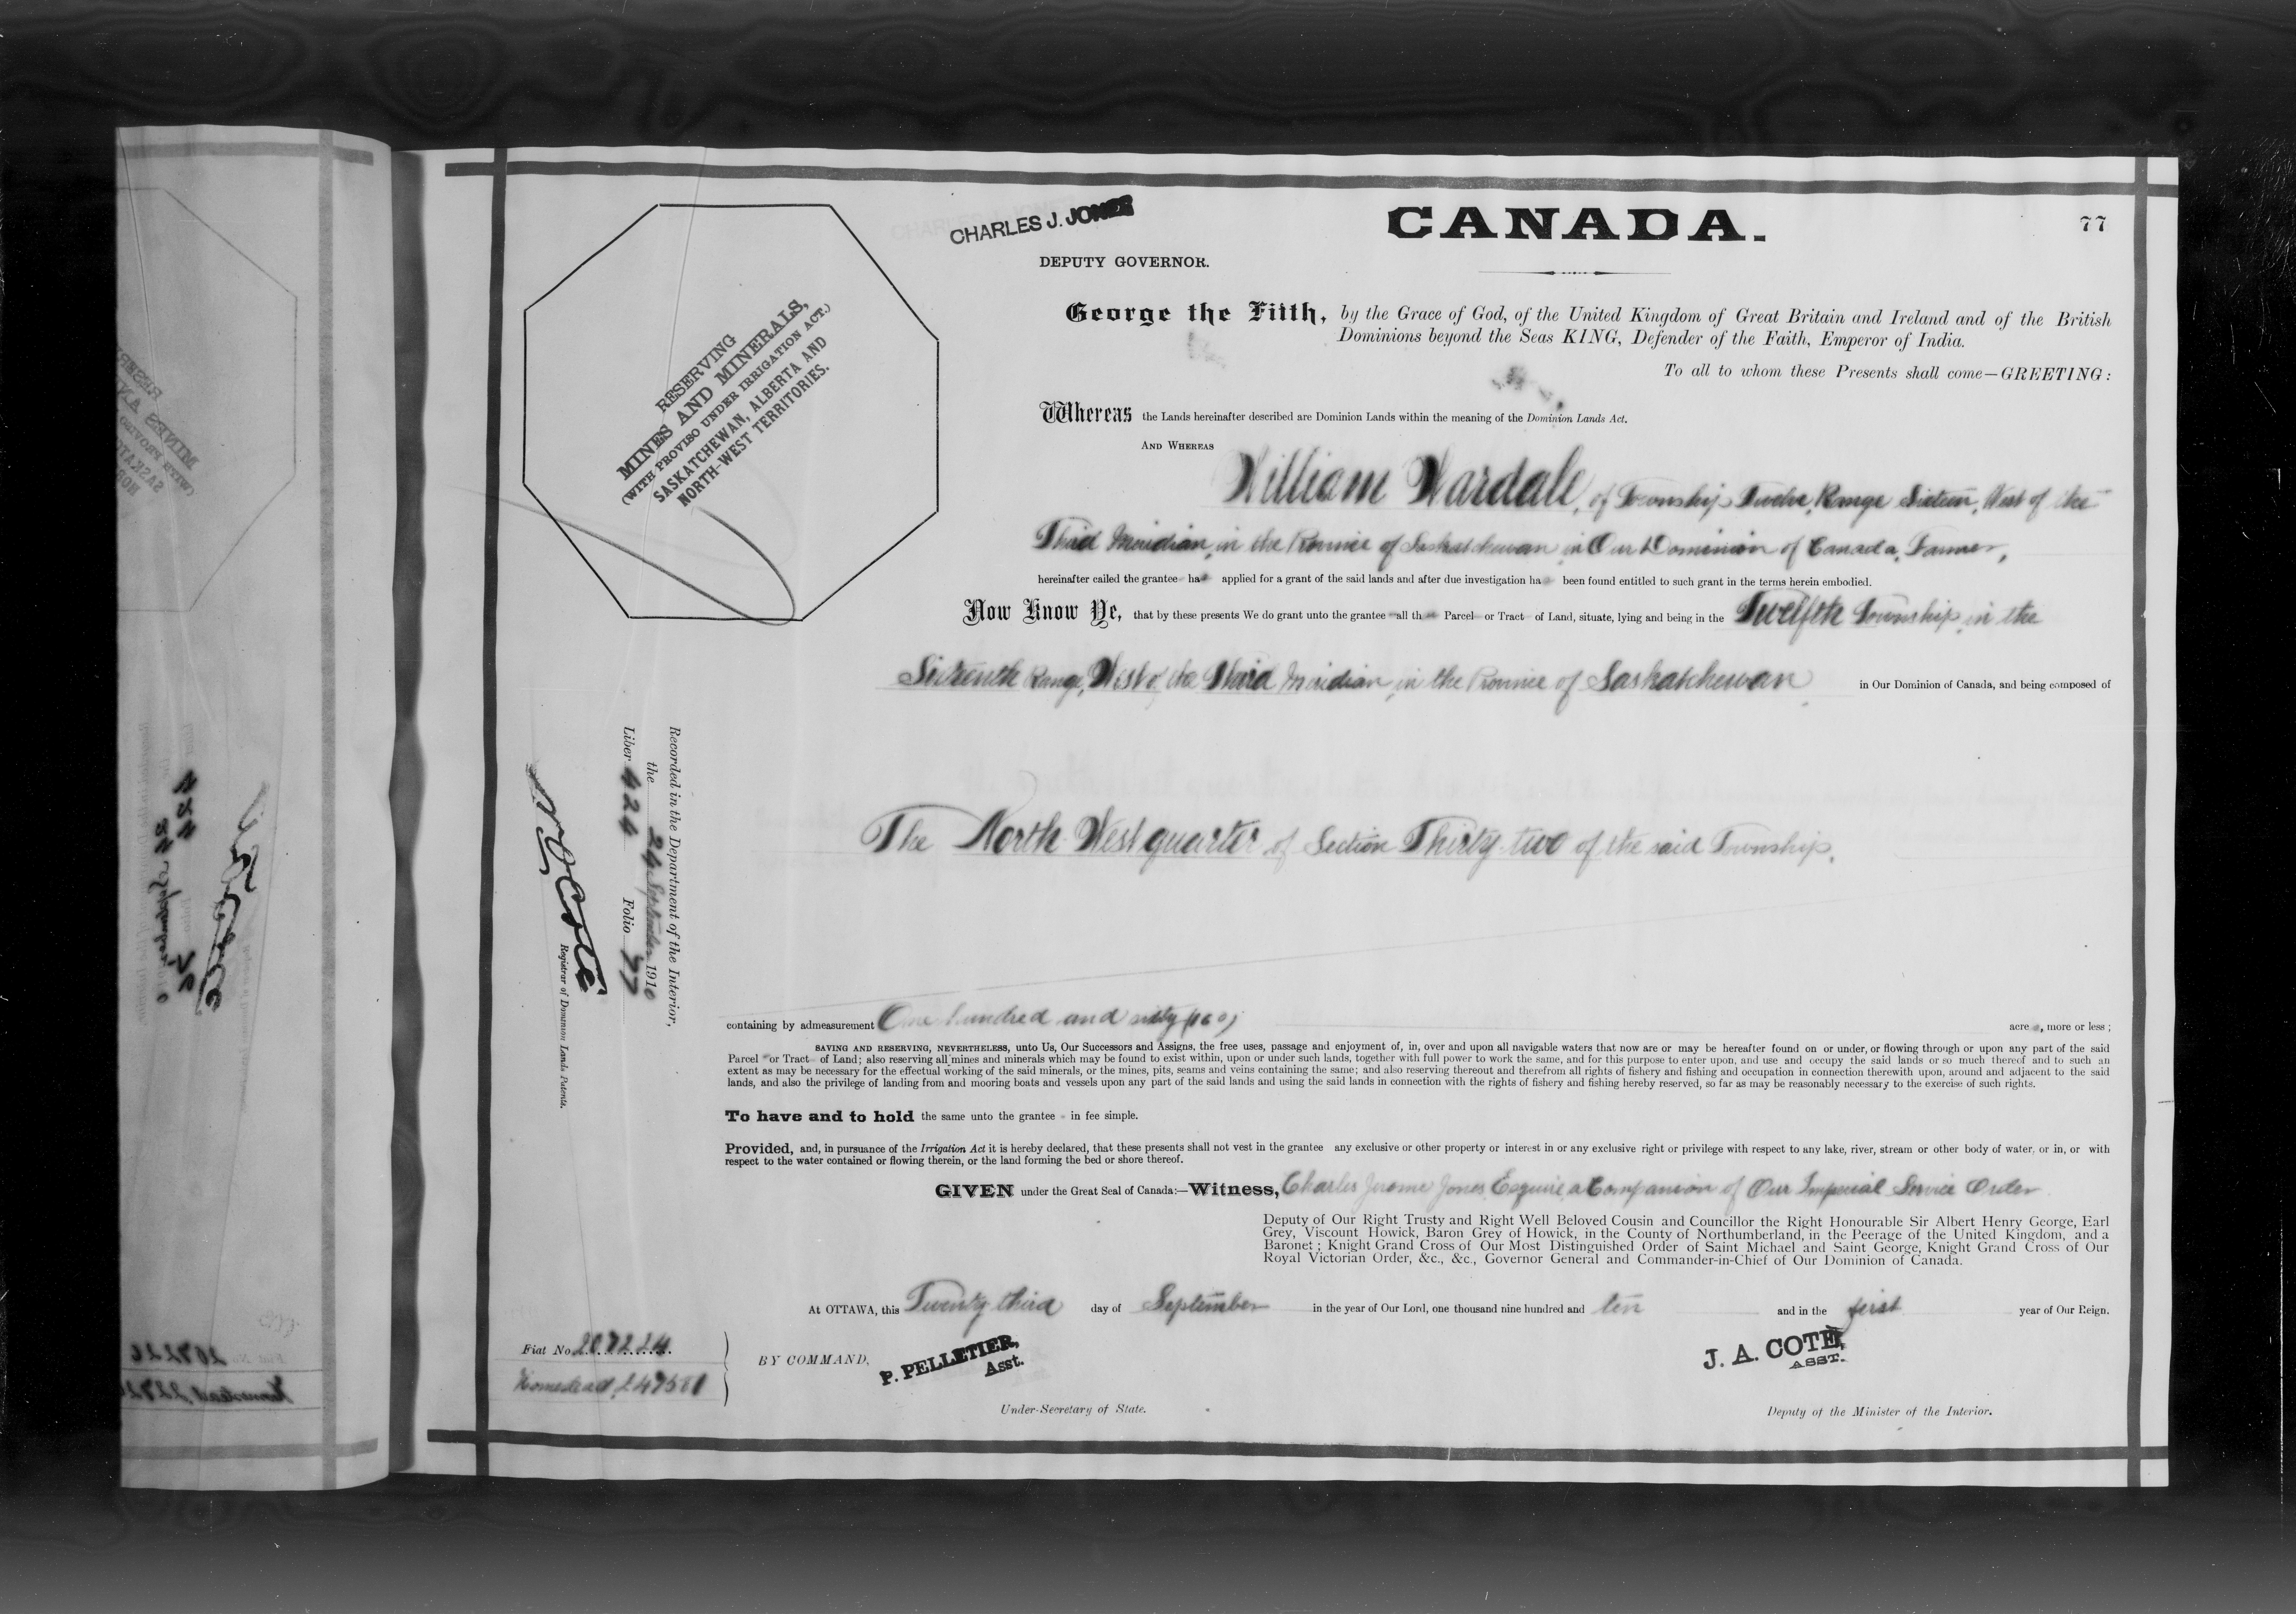 CANADA.
77
CHARLES J. JONES
DEPUTY GOVERNOR.
RESERVING
MINES AND MINERALS,
(WITH PROVISO UNDER IRRIGATION ACT.)
SASKATCHEWAN, ALBERTA AND
NORTH-WEST TERRITORIES.
George the Fifth, by the Grace of God, of the United Kingdom of Great Britain and Ireland and of the British
Dominions beyond the Seas KING, Defender of the Faith, Emperor of India.
To all to whom these Presents shall come—GREETING:
Whereas the Lands hereinafter described are Dominion Lands within the meaning of the Dominion Lands Act.
AND WHEREAS
William Wardale, of Township Twelve, Range Sixteen, West of the
Third Meridian, in the Province of Saskatchewan in Our Dominion of Canada, Farmer,
hereinafter called the grantee has applied for a grant of the said lands and after due investigation has been found entitled to such grant in the terms herein embodied.
Now Know Ye, that by these presents We do grant unto the grantee all that Parcel or Tract of Land, situate, lying and being in the Twelfth Township, in the
Sixteenth Range, West of the Third Meridian, in the Province of Saskatchewan in Our Dominion of Canada, and being composed of
The North West quarter of Section Thirty-two of the said Township.
Recorded in the Department of the Interior,
the 24 September 1910
Liber 424 Folio 77
N O Coté
Registrar of Dominion Lands Patents.
containing by admeasurement One hundred and sixty (160) acres, more or less;
SAVING AND RESERVING, NEVERTHELESS, unto Us, Our Successors and Assigns, the free uses, passage and enjoyment of, in, over and upon all navigable waters that now are or may be hereafter found on or under, or flowing through or upon any part of the said
Parcel or Tract of Land; also reserving all mines and minerals which may be found to exist within, upon or under such lands, together with full power to work the same, and for this purpose to enter upon, and use and occupy the said lands or so much thereof and to such an
extent as may be necessary for the effectual working of the said minerals, or the mines, pits, seams and veins containing the same; and also reserving thereout and therefrom all rights of fishery and fishing and occupation in connection therewith upon, around and adjacent to the said
lands, and also the privilege of landing from and mooring boats and vessels upon any part of the said lands and using the said lands in connection with the rights of fishery and fishing hereby reserved, so far as may be reasonably necessary to the exercise of such rights.
To have and to hold the same unto the grantee in fee simple.
Provided, and, in pursuance of the Irrigation Act it is hereby declared, that these presents shall not vest in the grantee any exclusive or other property or interest in or any exclusive right or privilege with respect to any lake, river, stream or other body of water, or in, or with
respect to the water contained or flowing therein, or the land forming the bed or shore thereof.
GIVEN under the Great Seal of Canada:—Witness, Charles Jerome Jones, Esquire, a Companion of Our Imperial Service Order
Deputy of Our Right Trusty and Right Well Beloved Cousin and Councillor the Right Honourable Sir Albert Henry George, Earl
Grey, Viscount Howick, Baron Grey of Howick, in the County of Northumberland, in the Peerage of the United Kingdom, and a
Baronet; Knight Grand Cross of Our Most Distinguished Order of Saint Michael and Saint George, Knight Grand Cross of Our
Royal Victorian Order, &c., &c., Governor General and Commander-in-Chief of Our Dominion of Canada.
At OTTAWA, this Twenty third day of September in the year of Our Lord, one thousand nine hundred and ten and in the first year of Our Reign.
Fiat No 207224
Homestead, 247581
BY COMMAND,
P. PELLETIER,
Asst.
Under-Secretary of State.
J. A. COTÉ,
ASST.
Deputy of the Minister of the Interior.